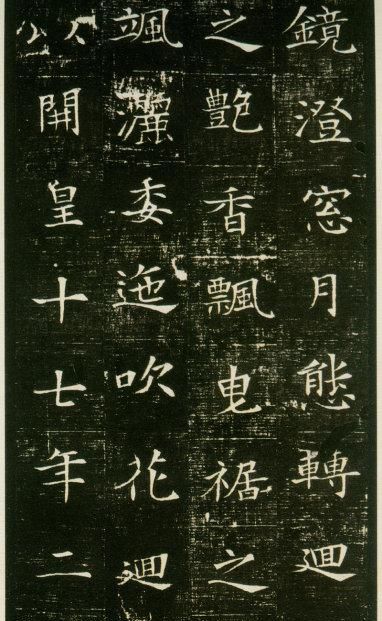 鏡澄窓月態轉廻
之艶香飄曳裾之
颯灑委迤吹花廻
以開皇十七年二